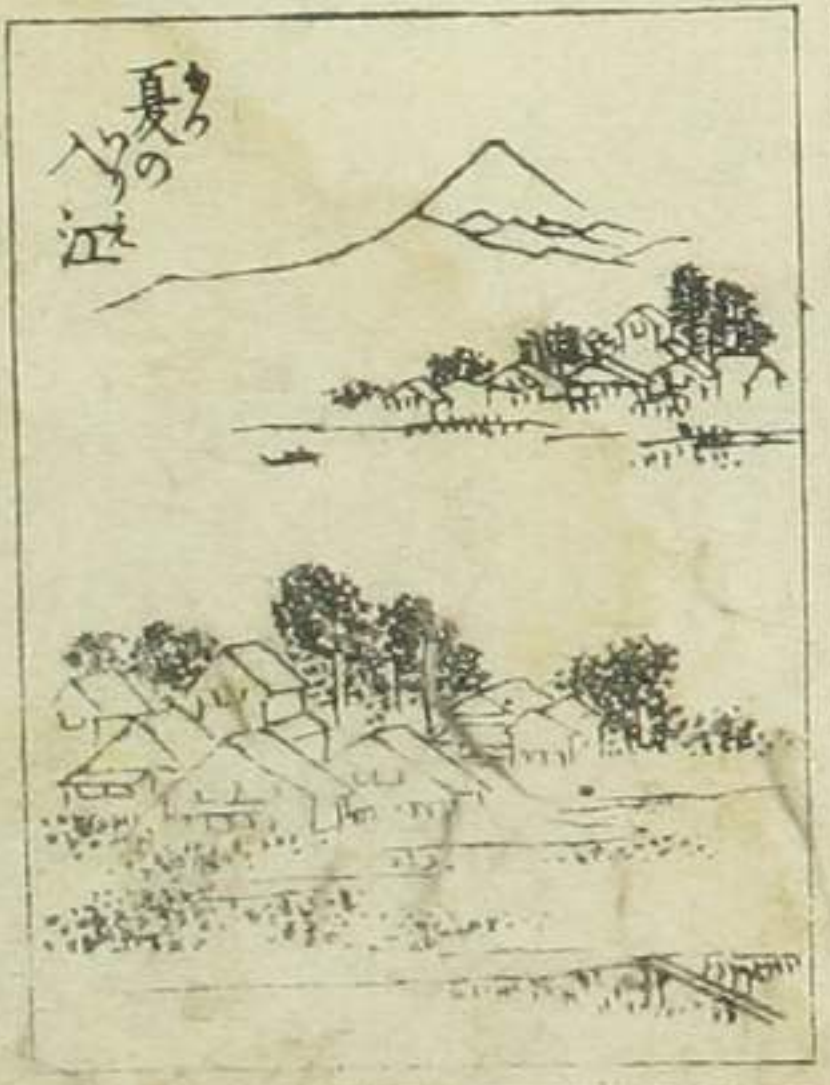 夏の
入江